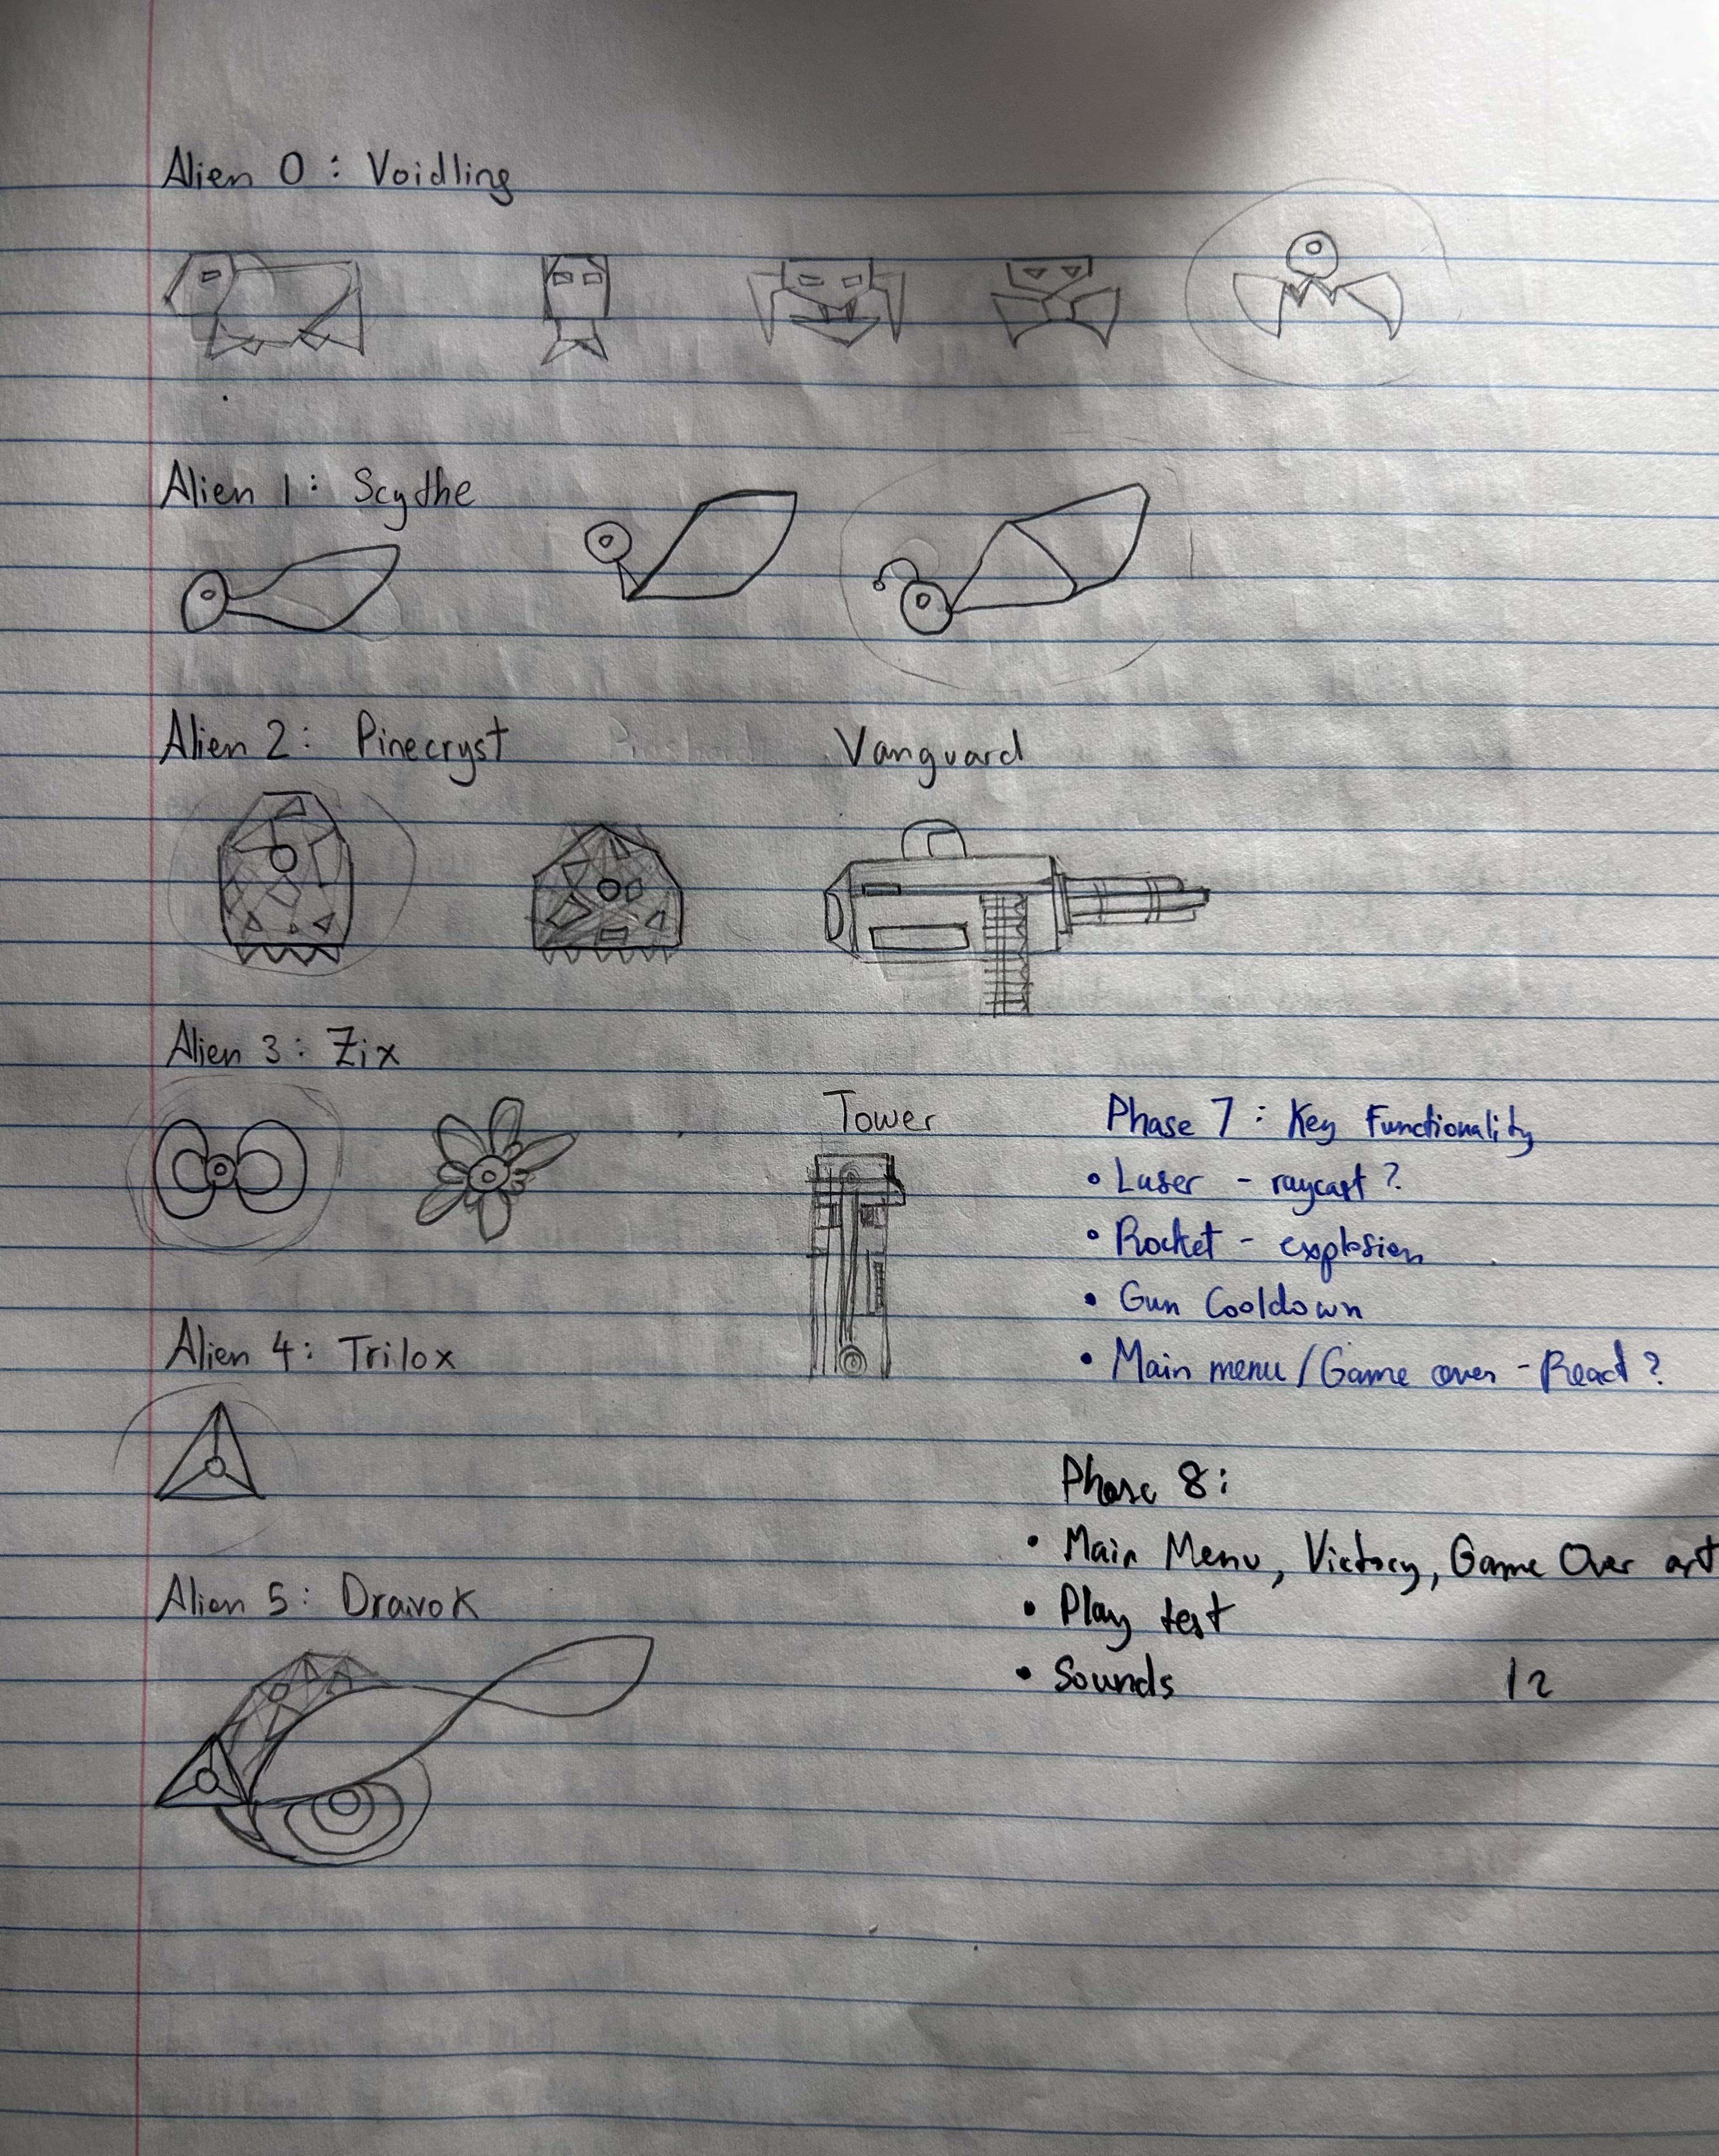 Alien 0 : Voidling
Alien 1 : Scythe
Alien 2 : Pinecryst
Vanguard
Alien 3 : Zix
Tower
Alien 4 : Trilox
Alien 5 : Draivok
Phase 7 : Key Functionality
• Laser - raycast ?
• Rocket - explosion
• Gun Cooldown
• Main menu / Game over - React ?
Phase 8 :
• Main Menu, Victory, Game Over art
• Play test
• Sounds
12